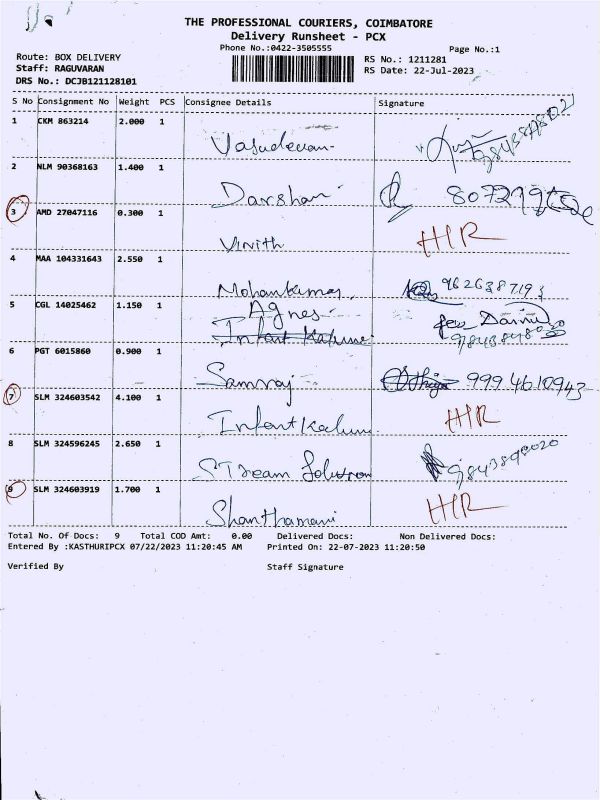 THE PROFESSIONAL COURIERS, COIMBATORE
Delivery Runsheet - PCX
Phone No.:0422-3505555
Page No.:1
Route: BOX DELIVERY
Staff: RAGUVARAN
DRS No.: DCJB121128101
RS No.: 1211281
RS Date: 22-Jul-2023
S No Consignment No Weight PCS Consignee Details Signature
1 CKM 863214 2.000 1
Vasudevan
2 NLM 90368163 1.400 1
Darshan
3 AMD 27047116 0.300 1
Vinith HIR
4 MAA 104331643 2.550 1
Mohankumar 9626387193
5 CGL 14025462 1.150 1
Agnes
Infant
6 PGT 6015860 0.900 1
Samraj 9994610943
7 SLM 324603542 4.100 1
Infant HIR
8 SLM 324596245 2.650 1
STream Solution
9 SLM 324603919 1.700 1
Shanthamani HIR
Total No. Of Docs: 9 Total COD Amt: 0.00 Delivered Docs: Non Delivered Docs:
Entered By :KASTHURIPCX 07/22/2023 11:20:45 AM Printed On: 22-07-2023 11:20:50
Verified By Staff Signature